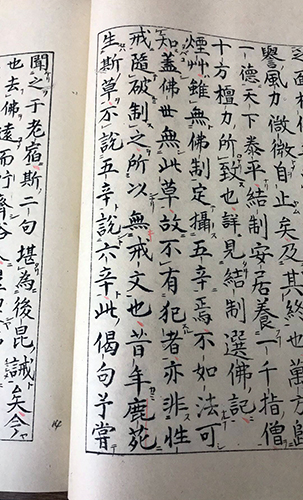 譽風力微微自止矣及其終也萬方歸
一德天下泰平結制安居養一千指僧
十方檀力所致也詳見結制選佛記
煙艸雖無佛制定攝五辛焉不如法可
知蓋佛世無此草故不有犯者亦非性
戒隨破制之所以無戒文也昔年鹿苑
生斯草不說五辛說六辛此偈句予嘗
聞之于老宿斯二句堪為後昆誡矣今
也去佛遠而行